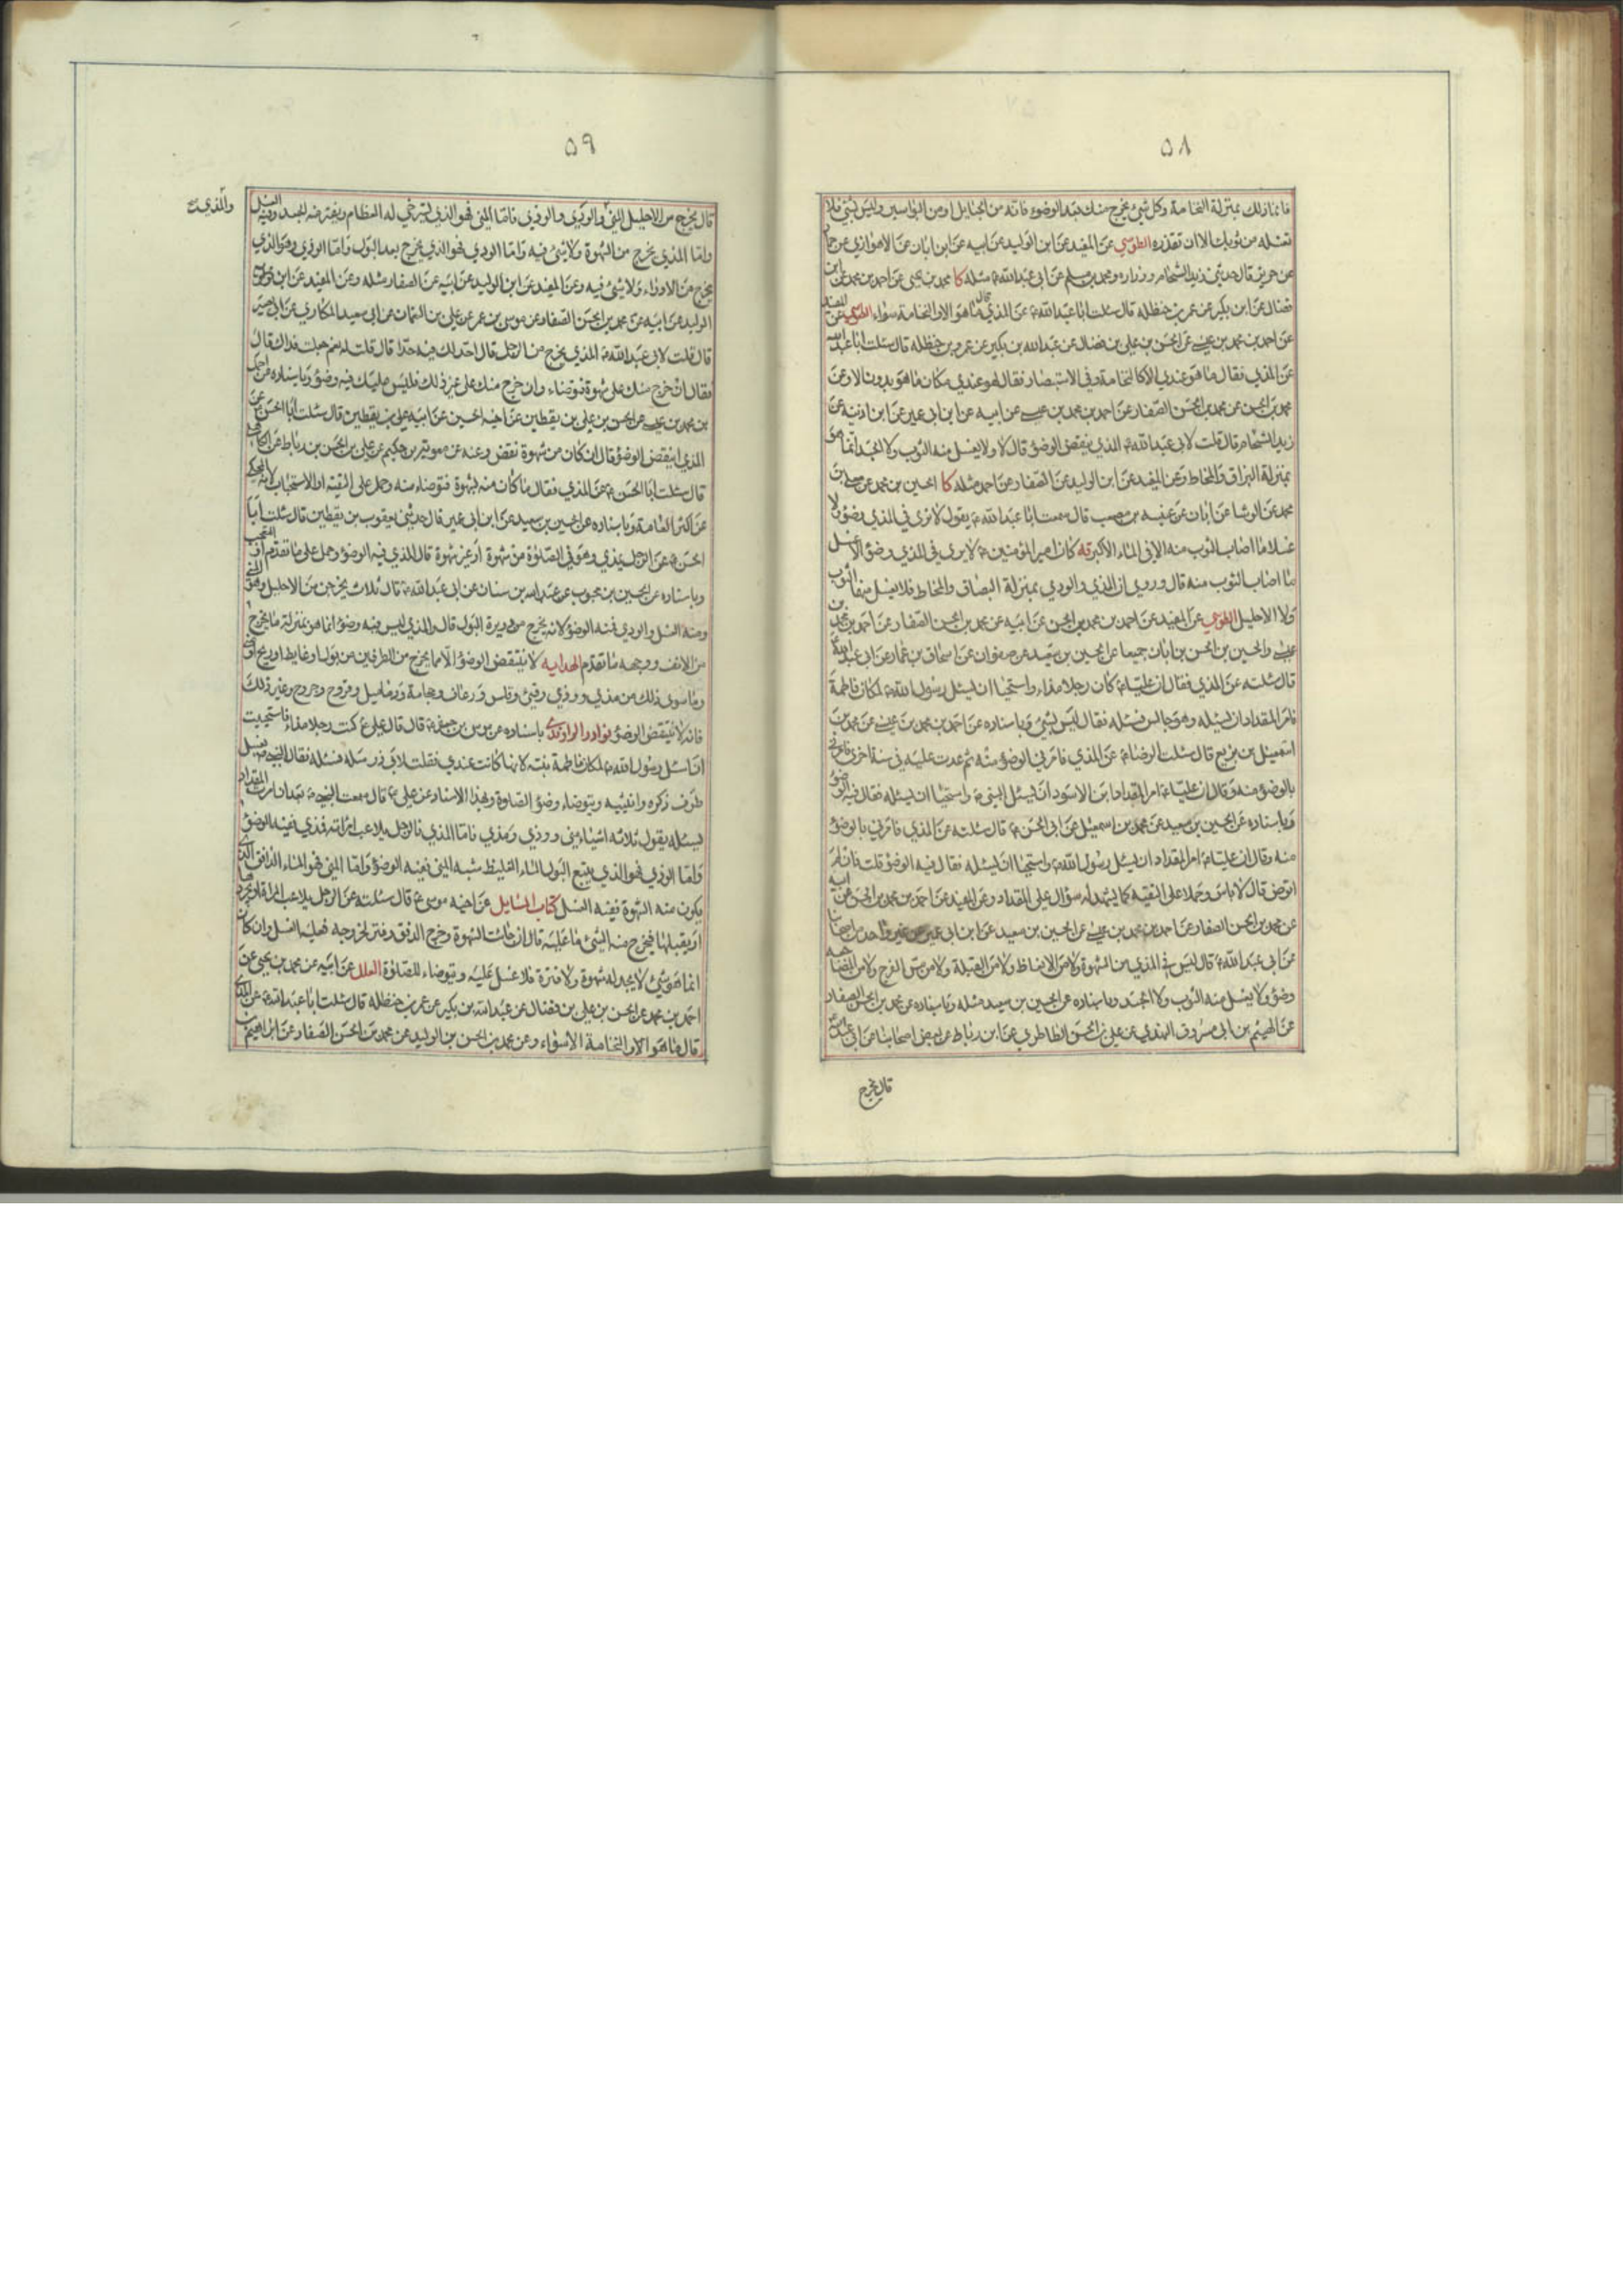 ٥٨
فانما ذلك بمنزلة النخامة وكل شيء يخرج منك بعد الوضوء فانه من الحبايل او من البواسير وليس بشيء فلا
تغسله من ثوبك الا ان تقذره الطوسي عن المفيد عن ابن الوليد عن ابيه عن ابن ابان عن الاهوازي عن حماد
عن حريز قال حدثني زيد الشحام وزراره ومحمد بن مسلم عن ابي عبد الله ع مثله كا محمد بن يحيى عن احمد بن محمد عن ابن
فضال عن ابن بكير عن عمر بن حنظله قال سئلت ابا عبد الله ع عن المذي فقال ما هو الا والنخامة سواء الطوسي عن المفيد
عن احمد بن محمد بن عيسى عن الحسن بن علي بن فضال عن عبد الله بن بكير عن عمر بن حنظله قال سئلت ابا عبد الله
عن المذي فقال ما هو عندي الا كالنخامة وفي الاستبصار فقال هو عندي مكان ما هو بدون الا وعن
محمد بن الحسن عن محمد بن الحسن الصفار عن احمد بن محمد بن عيسى عن ابيه عن ابن ابي عمير عن ابن اذينه عن
زيد الشحام قال قلت لابي عبد الله ع المذي ينقض الوضوء قال لا ولا يغسل منه الثوب ولا الجسد انما هو
بمنزلة البزاق والمخاط وعن المفيد عن ابن الوليد عن الصفار عن احمد مثله كا الحسين بن محمد عن معلى بن
محمد عن الوشا عن ابان عن عنبسه بن مصعب قال سمعت ابا عبد الله ع يقول لا نرى في المذي وضوء ولا
غسلا ما اصاب الثوب منه الا في الماء الاكبر قه كان امير المؤمنين ع لا يرى في المذي وضوء ولا غسل
ما اصاب الثوب منه قال وروي ان المذي والودي بمنزلة البصاق والمخاط فلا يغسل منهما الثوب
ولا الاحليل الطوسي عن المفيد عن احمد بن محمد بن الحسن عن ابيه عن محمد بن الحسن الصفار عن احمد بن محمد بن
عيسى والحسين بن الحسن بن ابان جميعا عن الحسين بن سعيد عن صفوان عن اسحاق بن عمار عن ابي عبد الله ع
قال سئلته عن المذي فقال ان عليا ع كان رجلا مذاء واستحيا ان يسئل رسول الله ص لمكان فاطمة
فامر المقداد ان يسئله وهو جالس فسئله فقال ليس بشيء وباسناده عن احمد بن محمد بن عيسى عن محمد بن
اسمعيل بن بزيع قال سئلت الرضا ع عن المذي فامرني بالوضوء منه ثم عدت عليه في سنة اخرى فامرني
بالوضوء منه وقال ان عليا ع امر المقداد ابن الاسود ان يسئل النبي ص واستحيا ان يسئله فقال فيه الوضوء
وباسناده عن الحسين بن سعيد عن محمد بن اسمعيل عن ابي الحسن ع قال سئلته عن المذي فامرني بالوضوء
منه وقال ان عليا ع امر المقداد ان يسئل رسول الله ص واستحيا ان يسئله فقال فيه الوضوء قلت فان لم
اتوض قال لا باس وحملا على التقيه كما يشهد له سؤال علي المقداد وعن المفيد عن احمد بن محمد بن الحسن عن ابيه
عن محمد بن الحسن الصفار عن احمد بن محمد بن عيسى عن الحسين بن سعيد عن ابن ابي عمير عن غير واحد من اصحابنا
عن ابي عبد الله ع قال ليس في المذي من الشهوة ولا من الانعاظ ولا من القبلة ولا من مس الفرج ولا من المضاجعة
وضوء ولا يغسل منه الثوب ولا الجسد وباسناده عن الحسين بن سعيد مثله وباسناده عن محمد بن الحسن الصفار
عن الهيثم بن ابي مسروق النهدي عن علي بن الحسن الطاطري عن ابن رباط عن بعض اصحابنا عن ابي عبد الله ع
قال يخرج
٥٩
قال يخرج من الاحليل المني والودي والوذي فاما المني فهو الذي تسترخي له العظام ويفتر منه الجسد وفيه الغسل
والمذي
واما المذي يخرج من الشهوة ولا شيء فيه واما الودي فهو الذي يخرج بعد البول واما الوذي وهو الذي
يخرج من الادواء ولا شيء فيه وعن المفيد عن ابن الوليد عن ابيه عن الصفار مثله وعن المفيد عن ابن
الوليد عن ابيه عن محمد بن الحسن الصفار عن موسى بن عمر عن علي بن النعمان عن ابي سعيد المكاري عن ابي بصير
قال قلت لابي عبد الله ع المذي يخرج من الرجل قال احد لك فيه حدا قال قلت له نعم جعلت فداك قال
فقال ان خرج منك على شهوة فتوضاء وان خرج منك على غير ذلك فليس عليك فيه وضوء وباسناده عن احمد
بن محمد بن عيسى عن الحسن بن علي بن يقطين عن اخيه الحسين عن ابيه علي بن يقطين قال سئلت ابا الحسن ع عن
المذي اينقض الوضوء قال ان كان من شهوة نقض وعنه عن معويه بن حكيم عن علي بن الحسن بن رباط عن الكاهلي
قال سئلت ابا الحسن ع عن المذي فقال ما كان منه بشهوة فتوضاء منه وحمل على التقيه او الاستحباب لانه المحكي
عن اكثر العامة وباسناده عن الحسين بن سعيد عن ابن ابي عمير قال حدثني يعقوب بن يقطين قال سئلت ابا
الحسن ع عن الرجل يمذي وهو في الصلوة من شهوة او غير شهوة قال المذي فيه الوضوء وحمل على ما تقدم او التعجب
وباسناده عن الحسين بن محبوب عن عبد الله بن سنان عن ابي عبد الله ع قال ثلاث يخرجن من الاحليل وهو المني
ومنه الغسل والودي فمنه الوضوء لانه يخرج من دريرة البول قال والمذي ليس فيه وضوء انما هو بمنزلة ما يخرج
من الانف ووجهه ما تقدم الهدايه لا ينقض الوضوء الا ما يخرج من الطرفين من بول او غايط او ريح او مني
وما سوى ذلك من مذي وودي وقيء وقلس ورعاف وحجامة ودماميل وقروح وجروح وغير ذلك
فانه لا ينقض الوضوء نوادر الراوندي باسناده عن موسى بن جعفر ع قال قال علي ع كنت رجلا مذاء فاستحييت
ان اسئل رسول الله ص لمكان فاطمة بنته لانها كانت عندي فقلت لابي ذر سله فسئله فقال النبي ص يغسل
طرف ذكره وانثييه ويتوضاء وضوء الصلوة وبهذا الاسناد عن علي ع قال سمعت النبي ص بعد ان امرت المقداد
يسئله يقول ثلاثه اشياء مني وودي ومذي فاما المذي فالرجل يلاعب امراته فمذي ففيه الوضوء
واما الودي فهو الذي يتبع البول الماء الغليظ شبه المني ففيه الوضوء واما المني فهو الماء الدافق الذي
يكون منه الشهوة ففيه الغسل كتاب المسايل عن اخيه موسى ع قال سئلته عن الرجل يلاعب المراة
او يقبلها فيخرج منه الشيء ما عليه قال ان جائت الشهوة وخرج الدفق وفتر لخروجه فعليه الغسل وان كان
انما هو شيء لا يجد له شهوة ولا فترة فلا غسل عليه ويتوضاء للصلوة العلل عن ابيه عن محمد بن يحيى عن
احمد بن محمد عن الحسن بن علي بن فضال عن عبد الله بن بكير عن عمر بن حنظله قال سئلت ابا عبد الله ع عن المذي
قال ما هو الا والنخامة الا سواء وعن محمد بن الحسن بن الوليد عن محمد بن الحسن الصفار عن ابراهيم بن